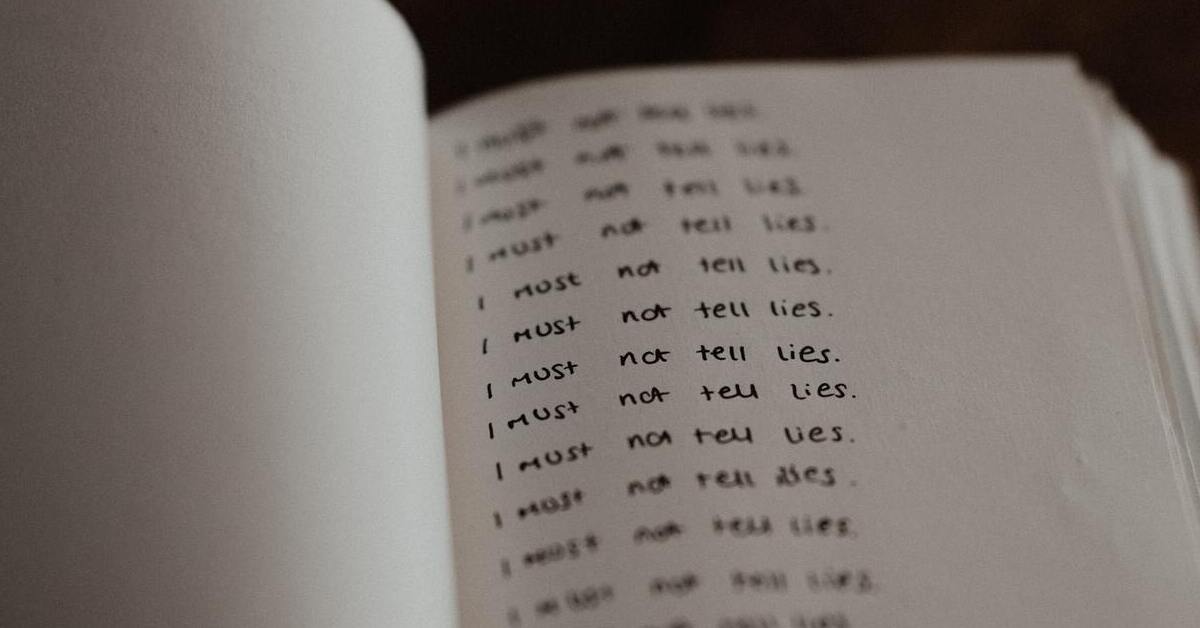 I must not tell lies
I must not tell lies.
I must not tell lies.
I must not tell lies.
I must not tell lies.
I must not tell lies.
I must not tell lies.
I must not tell lies.
I must not tell lies.
I must not tell lies.
I must not tell lies.
I must not tell lies.
tell lies